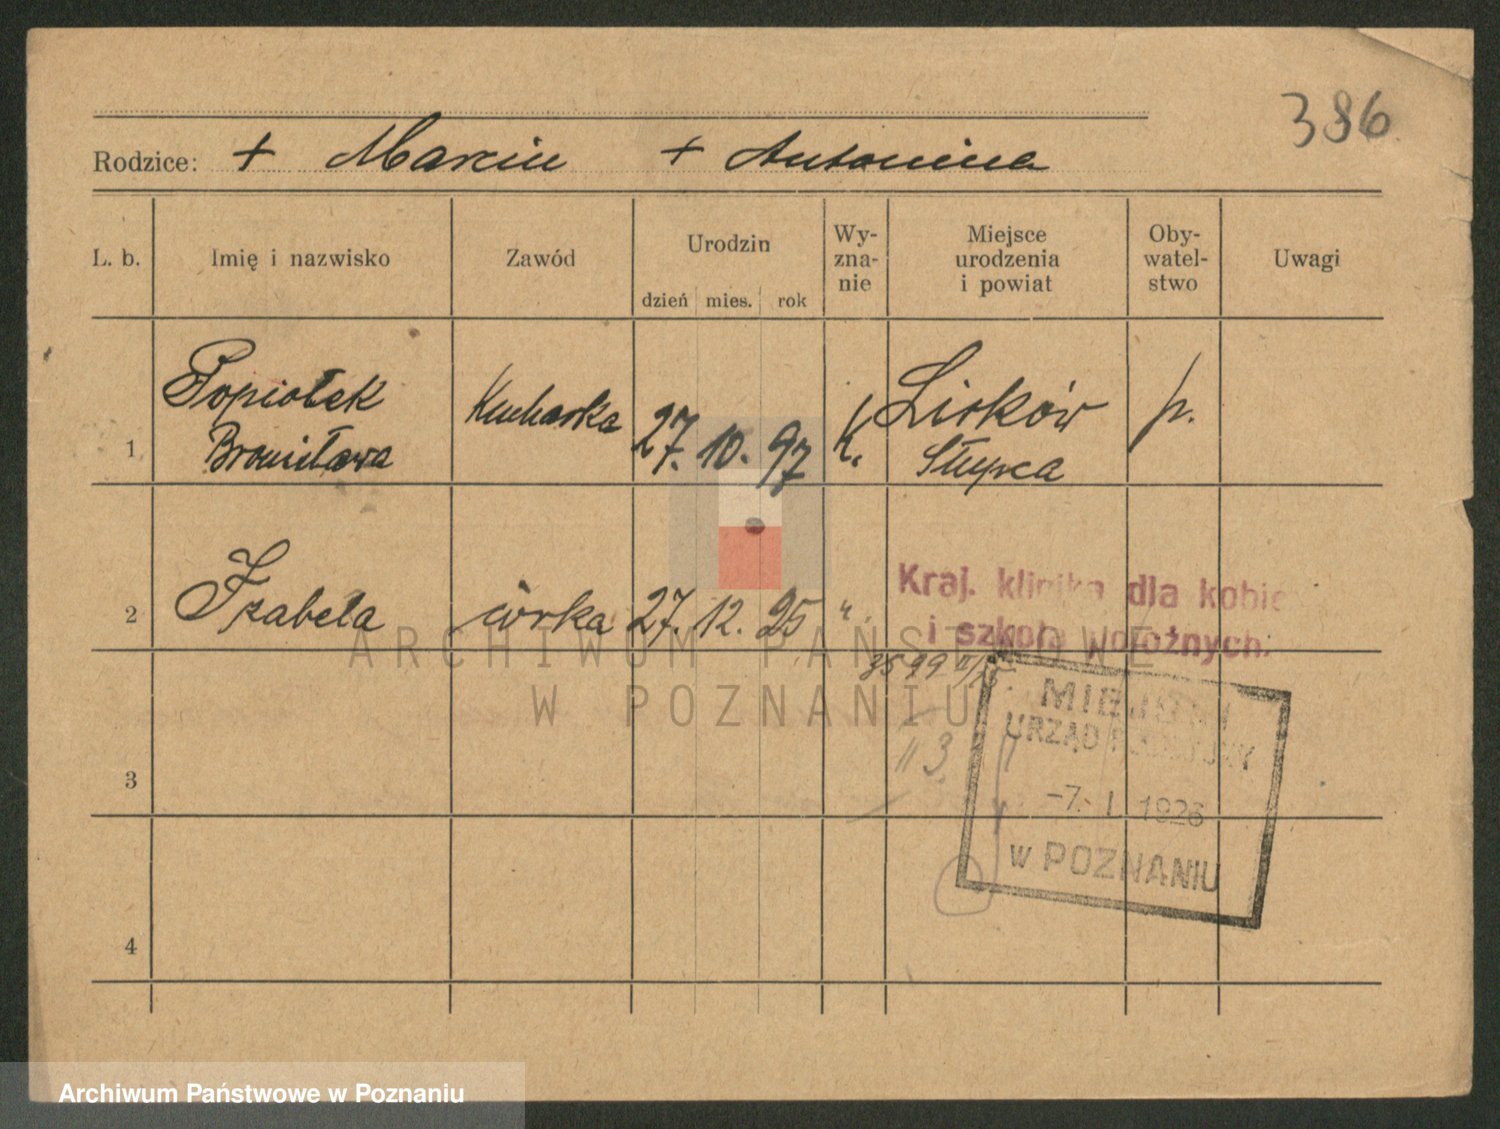 386
Rodzice: + Marcin + Antonina
L. b. Imię i nazwisko Zawód Urodzin Wy- Miejsce Oby- Uwagi
zna- urodzenia watel-
nie i powiat stwo
dzień mies. rok
1 Popiołek Kucharka 27. 10. 97 k. p.
Bronisława Słupca
2 Izabela córka 27. 12. 25 ".
Kraj. klinika dla kobie
i szkoła położnych.
3599
3
4
MIEJSKI
URZĄD POLICYJNY
-7. I. 1926
w POZNANIU
ARCHIWUM PAŃSTWOWE
W POZNANIU
Archiwum Państwowe w Poznaniu